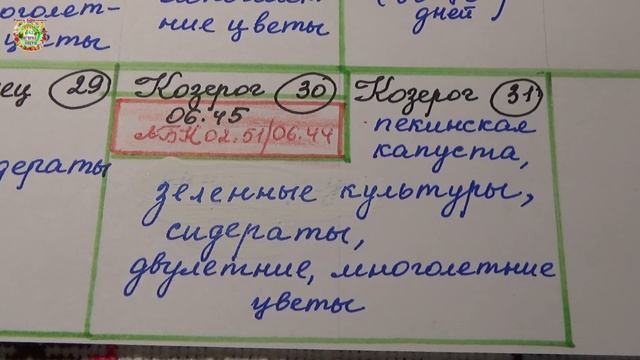 голет-
цветы
ние цветы
дней)
ец 29
дераты
Козерог 30
06.45
ЛБК 02.51/06.44
Козерог 31
пекинская
капуста,
зеленные культуры,
сидераты,
двулетние, многолетние
цветы